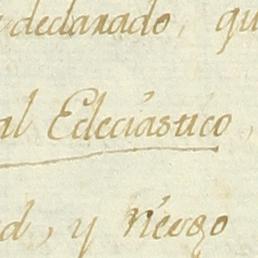 declarado, qu
al Ecleciástico,
d, y riesgo